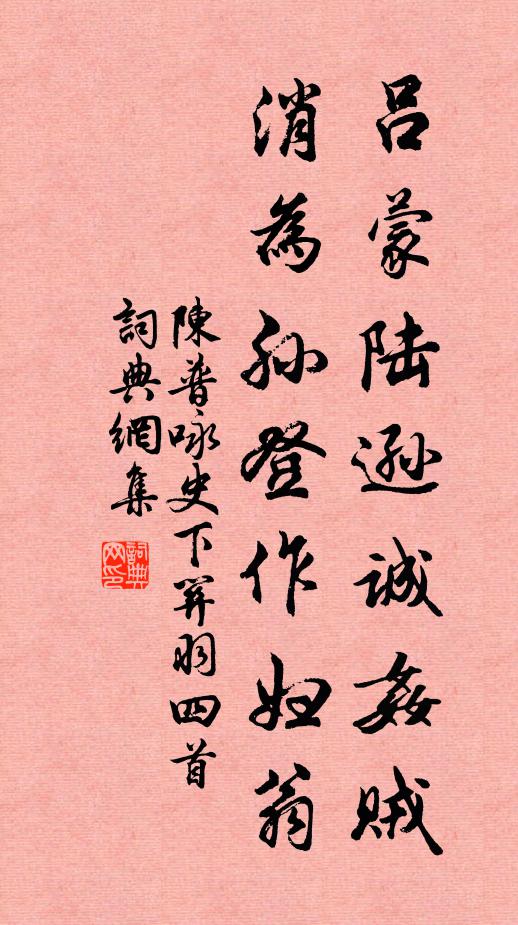 呂蒙陸遜誠姦賊
消為孙登作妇翁
陳普咏史下关羽四首
詞典網集
詞典网印